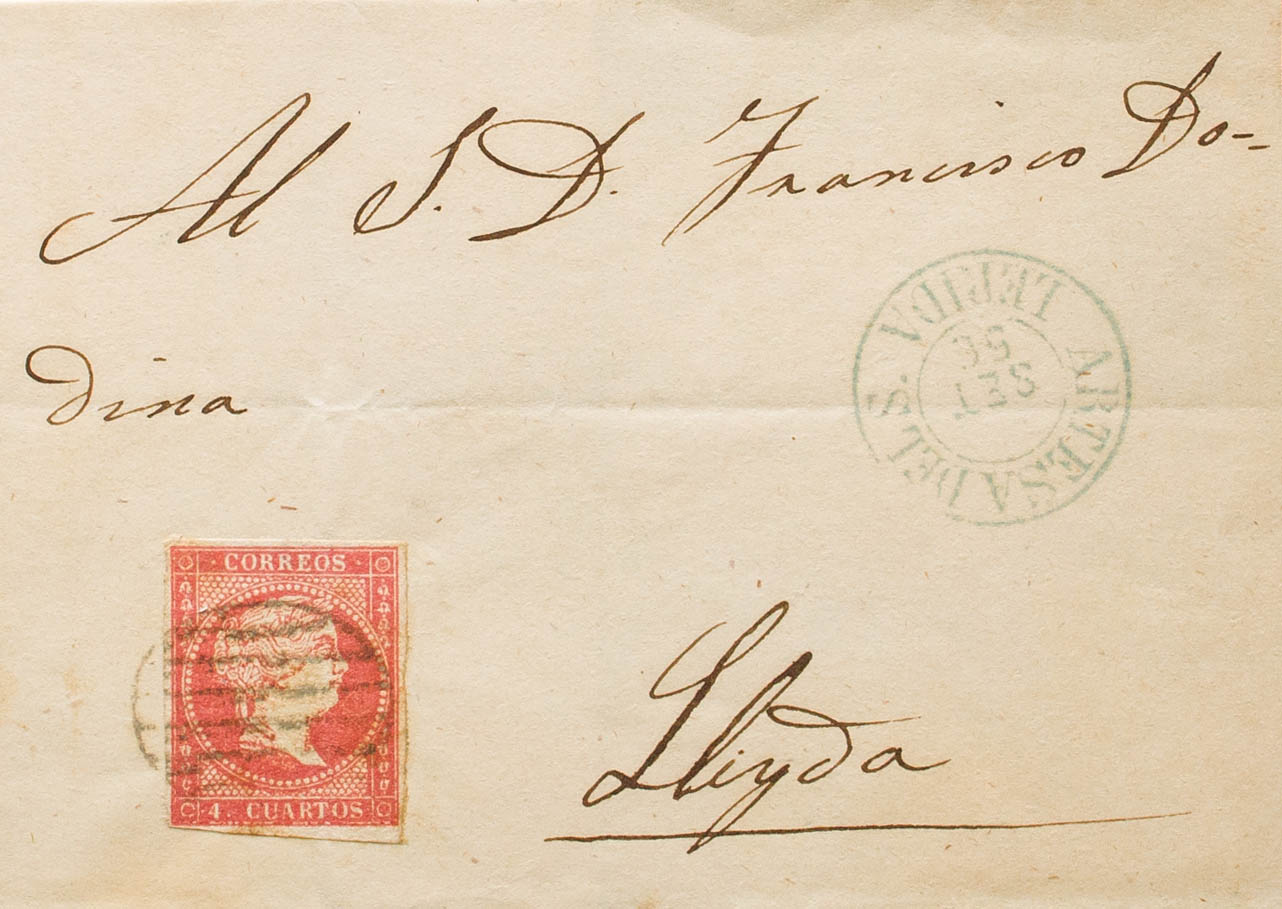 Al S. D. Francisco Do-
dina
ARTESA DEL S. LERIDA
SET
CORREOS
4. CUARTOS
Lleyda